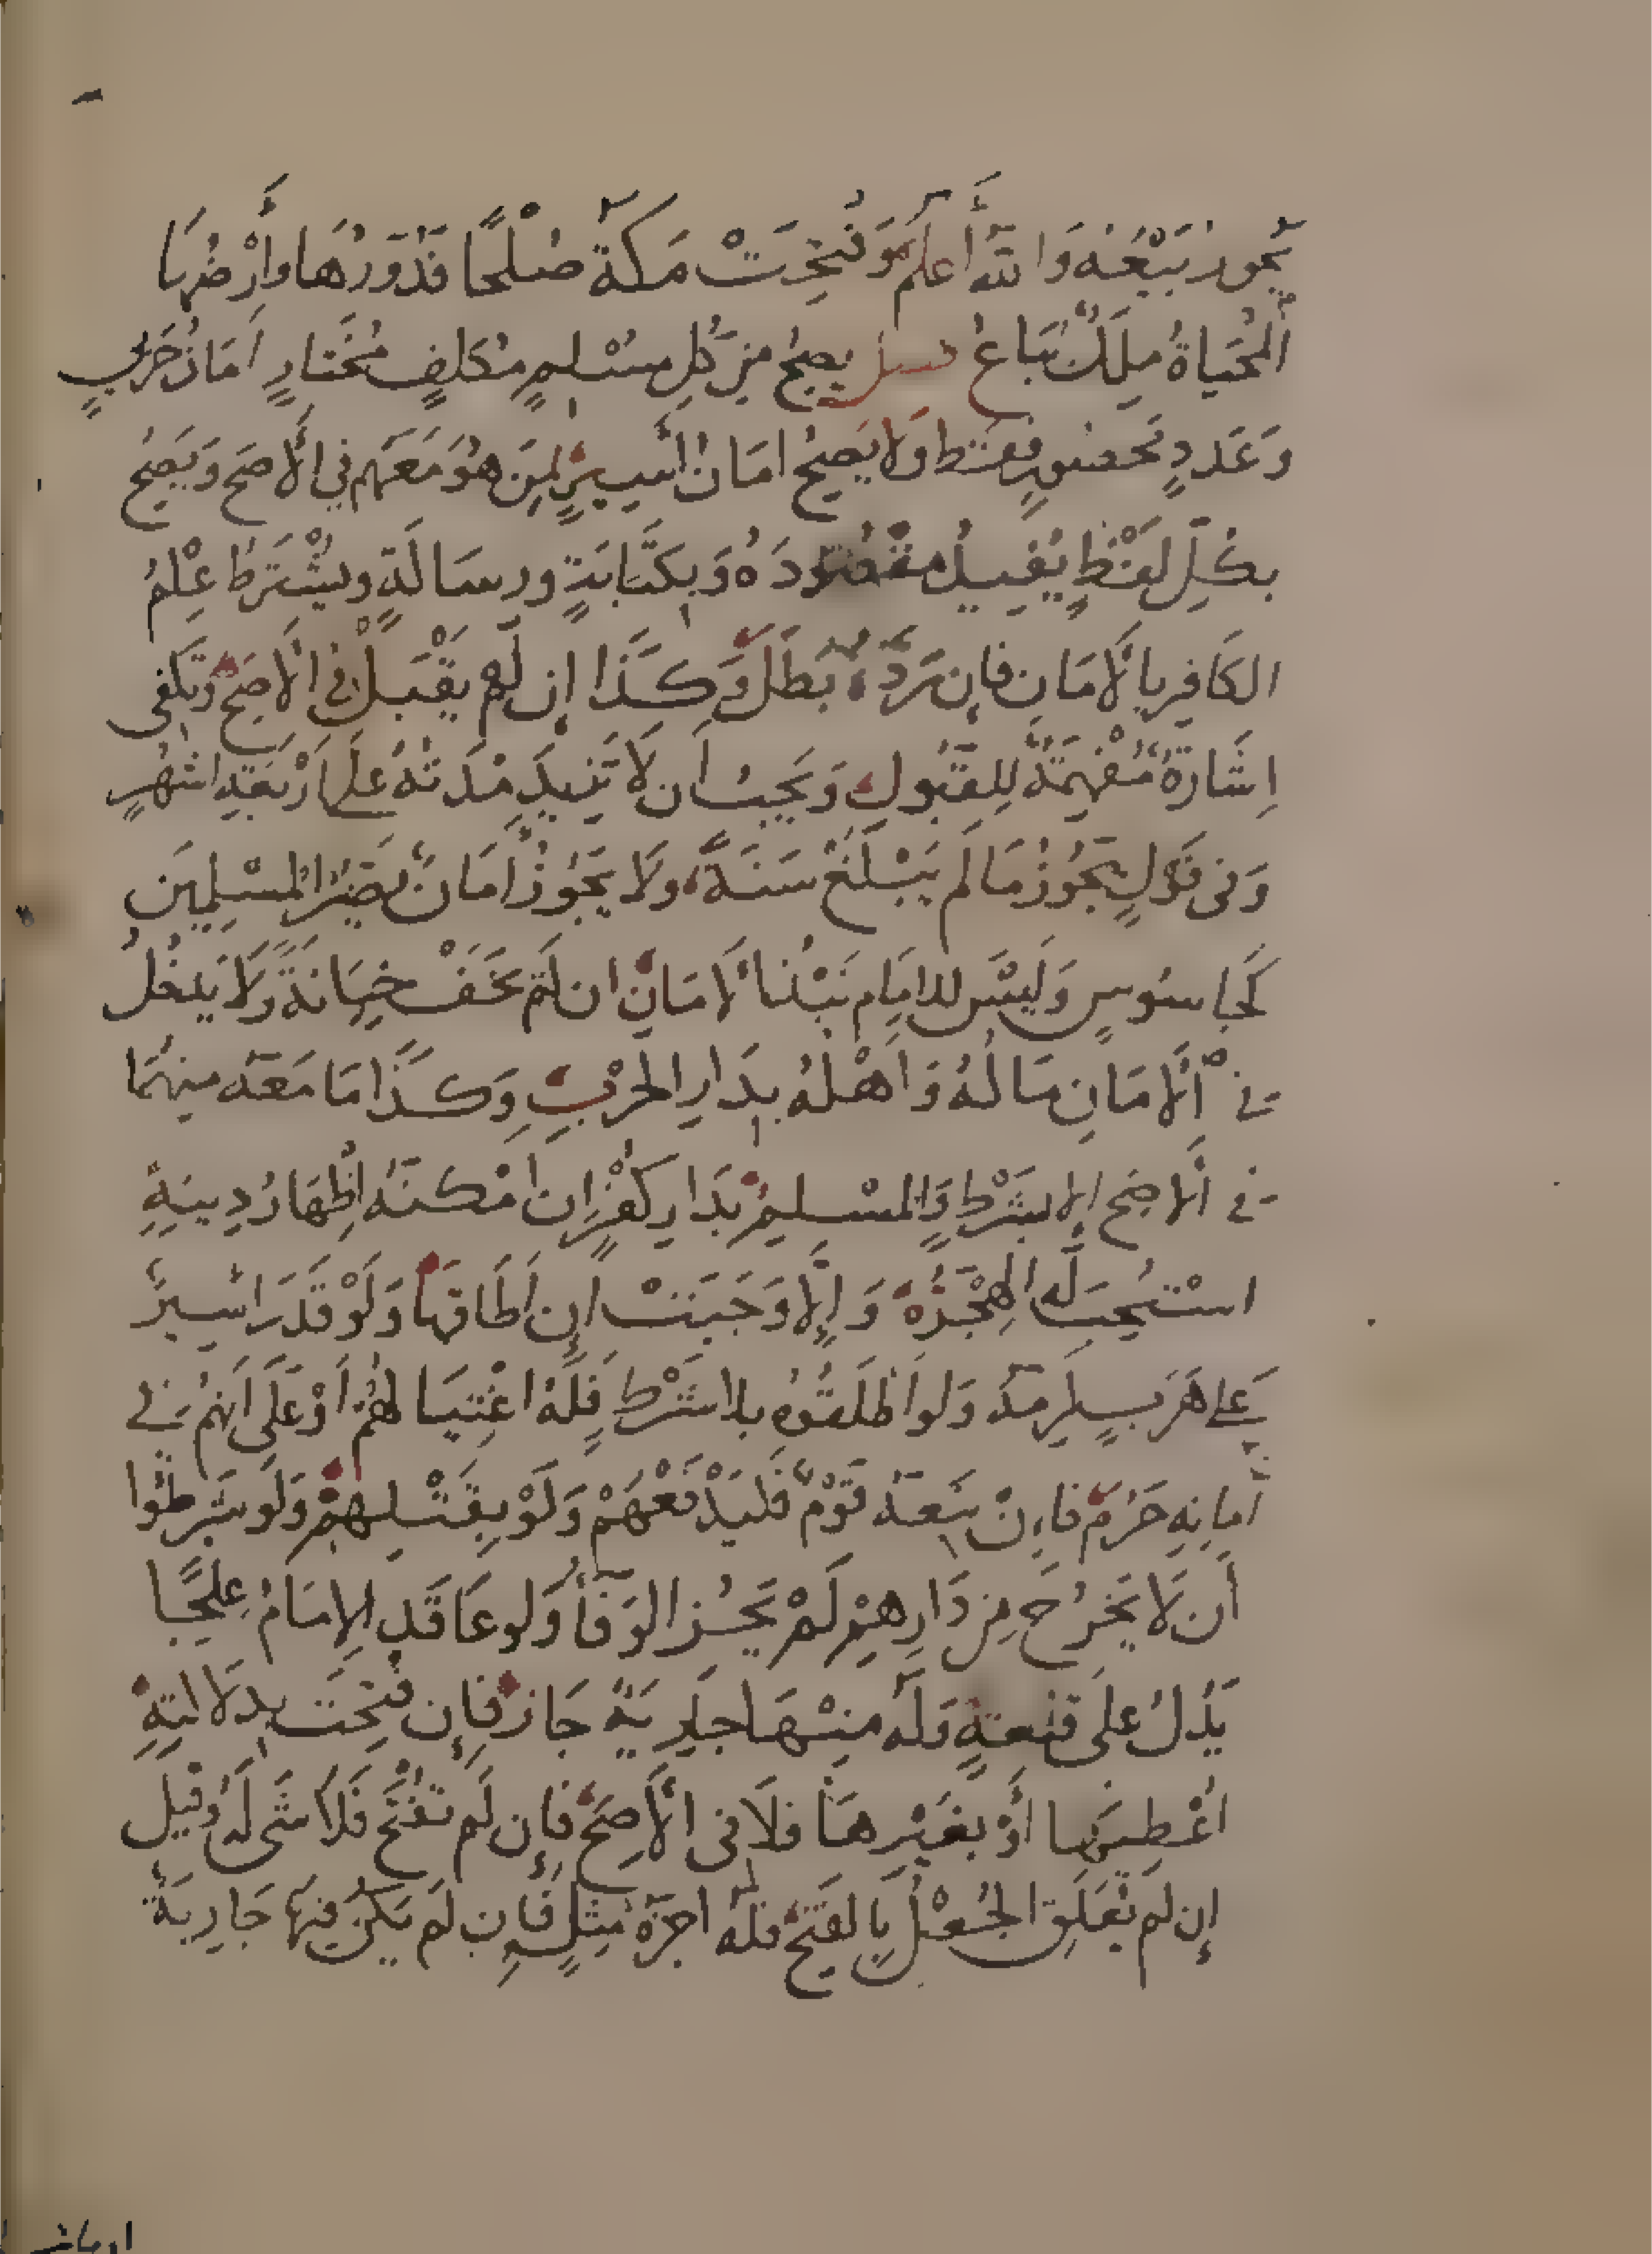 يجوز بيعه والله أعلم وفتحت مكة صلحا فدورها وأرضها
المحياة ملك تباع فصل يصح من كل مسلم مكلف مختار امان حربي
وعدد محصور فقط ولا يصح امان أسير لمن هو معهم في الأصح ويصح
بكل لفظ يفيد مقصوده وبكتابة ورسالة ويشترط علم
الكافر بالأمان فإن رده بطل وكذا إن لم يقبل في الأصح وتكفي
اشارة مفهمة للقبول ويجب ان لا تزيد مدته على اربعة اشهر
وفى قول يجوز ما لم يبلغ سنة ولا يجوز أمان يضر المسلمين
كجاسوس وليس للامام نبذ الأمان ان لم يخف خيانة ولا يدخل
في الأمان ماله واهله بدار الحرب وكذا ما معه منهما
في الأصح إلا بشرط والمسلم بدار كفر إن امكنه اظهار دينه
استحب له الهجرة وإلا وجبت إن اطاقها ولو قدر اسير
على هرب لزمه ولو اطلقوه بلا شرط فله اغتيالهم أو على انهم في
أمانه حرم فإن تبعه قوم فليدفعهم ولو بقتلهم ولو شرطوا
أن لا يخرج من دارهم لم يجز الوفأ ولو عاقد الإمام علجا
يدل على قلعة وله منها جارية جاز فإن فتحت بدلالته
اعطيها أو بغيرها فلا فى الأصح فإن لم تفتح فلا شى له وقيل
إن لم يعلق الجعل بالفتح فله اجرة مثل فإن لم يكن فيها جارية